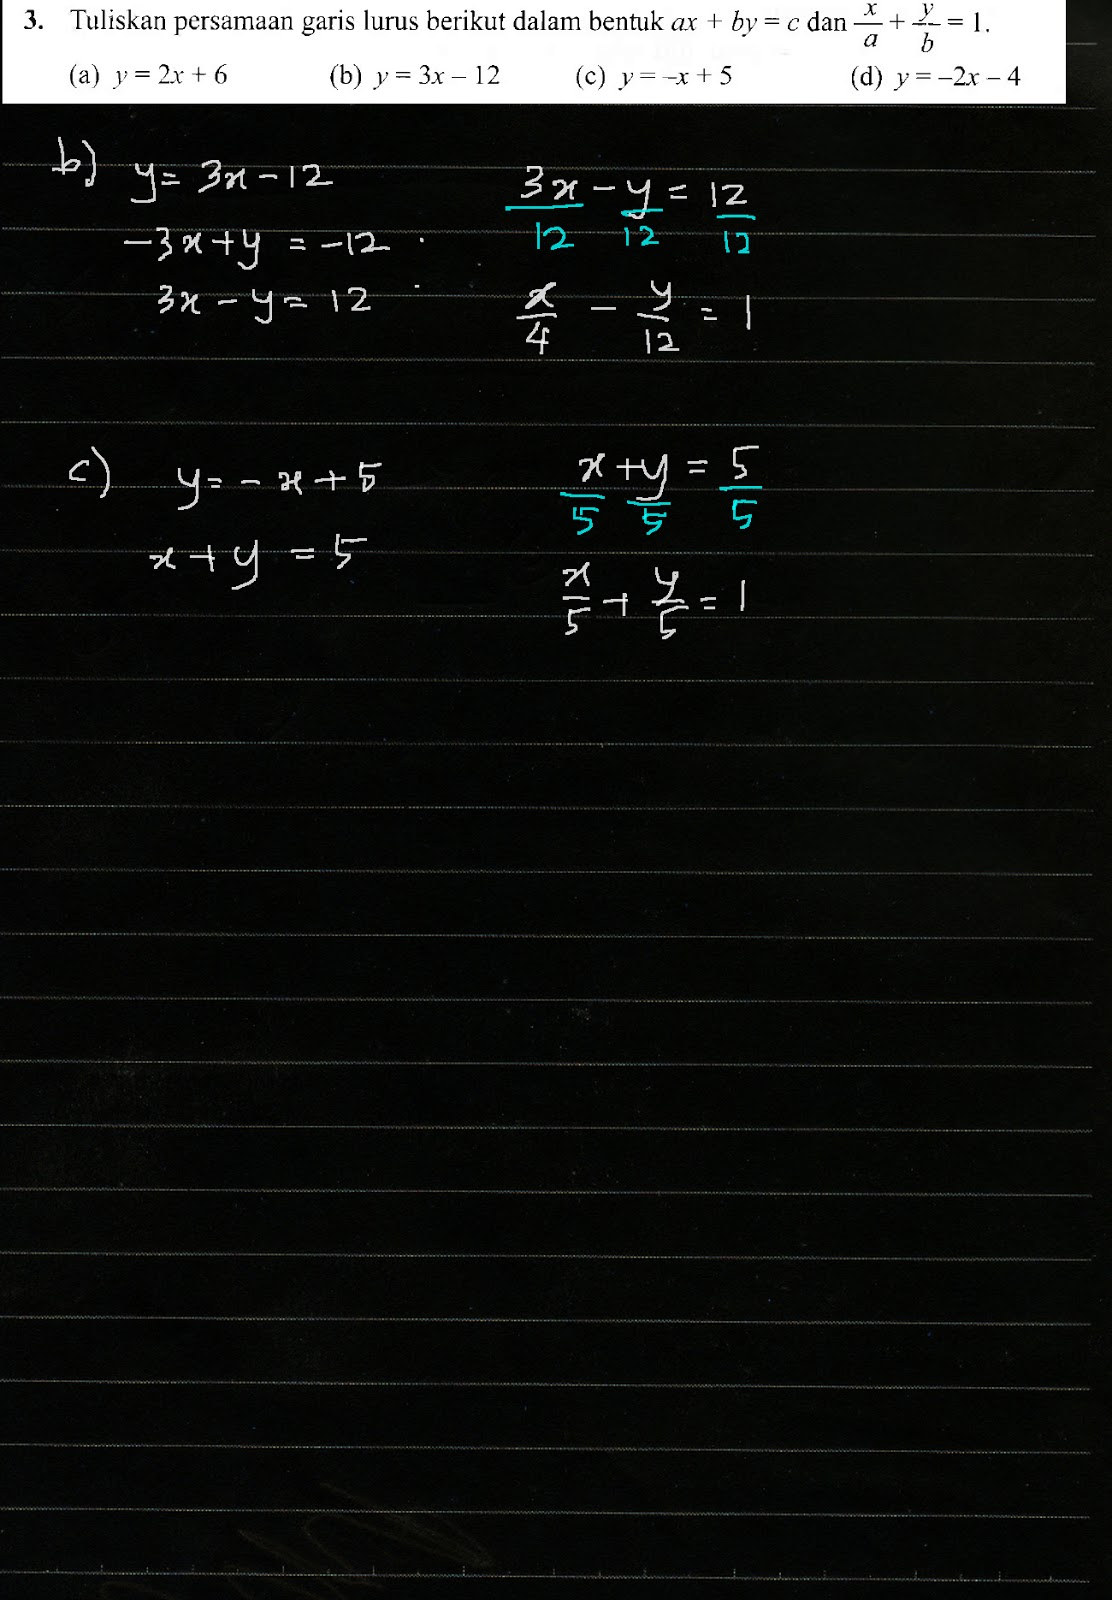 3. Tuliskan persamaan garis lurus berikut dalam bentuk ax + by = c dan x/a + y/b = 1.
(a) y = 2x + 6 (b) y = 3x – 12 (c) y = –x + 5 (d) y = –2x – 4
b) y = 3x – 12
–3x + y = –12 .
3x – y = 12 .
3x/12 – y/12 = 12/12
x/4 – y/12 = 1
c) y = – x + 5
x + y = 5
x/5 + y/5 = 5/5
x/5 + y/5 = 1